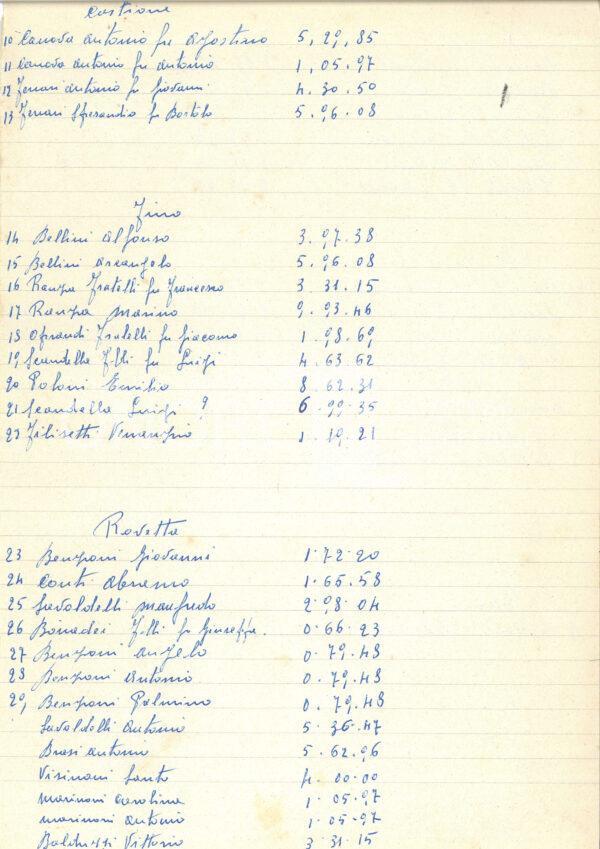 Castione
10 Canova Antonio fu Agostino 5,29,85
11 Canova Antonio fu Antonio 1,05.97
12 Ferrari Antonio fu Giovanni 4.30.50
13 Ferrari Sperandio fu Bortolo 5.96.08
Fino
14 Bellini Alfonso 3.97.38
15 Bellini Arcangelo 5.96.08
16 Ranza Fratelli fu Francesco 3 31.15
17 Ranza Marino 9.93.46
18 Oprandi Fratelli fu Giacomo 1.98.69
19, Scandella F.lli fu Luigi 4.63.62
20 Poloni Emilio 8.62.31
21 Scandella Luigi ? 6.99.35
22 Filisetti Venanzio 1.19.21
Rovetta
23 Benzoni Giovanni 1.72.20
24 Conti Abramo 1.65.58
25 Savoldelli Manfredo 2.98.04
26 Bonadei F.lli fu Giuseppe. 0.66.23
27 Benzoni Angelo 0.79.48
28 Benzoni Antonio 0.79.48
29, Benzoni Palmino 0.79.48
Savoldelli Antonio 5.36.47
Brasi Antonio 5.62.96
Visinoni Santo 4.00.00
Marinoni Carolina 1.05.97
Marinoni Antonio 1.05.97
Vittorio 3 31.15